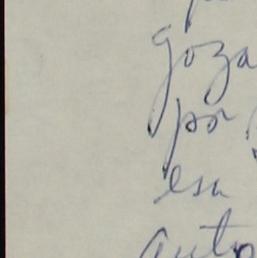 goza
por
esa
auto